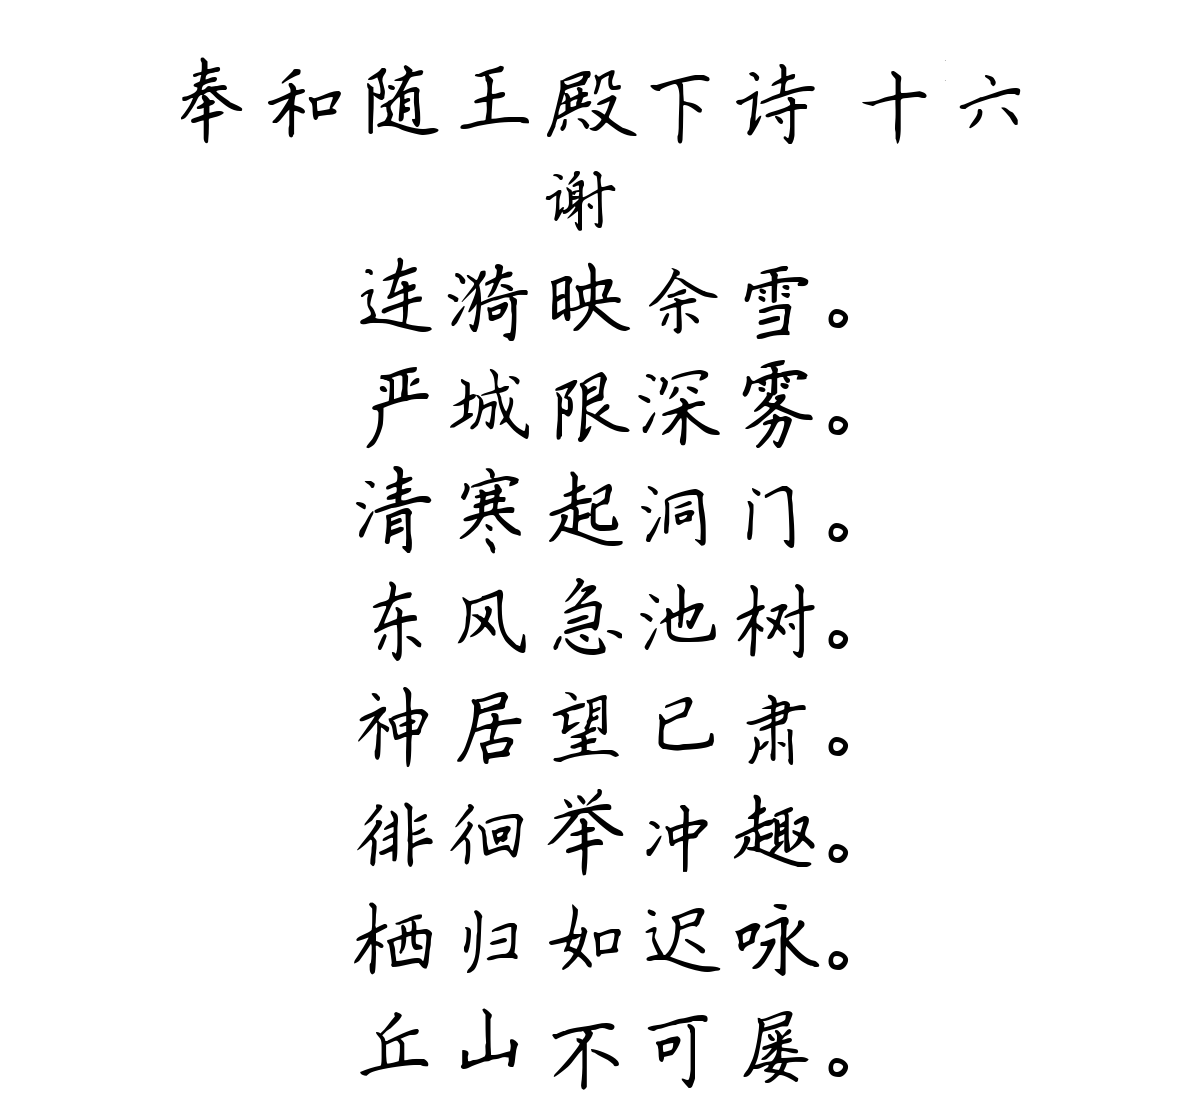 奉和随王殿下诗 十六
谢
连漪映余雪。
严城限深雾。
清寒起洞门。
东风急池树。
神居望已肃。
徘徊举冲趣。
栖归如迟咏。
丘山不可屡。